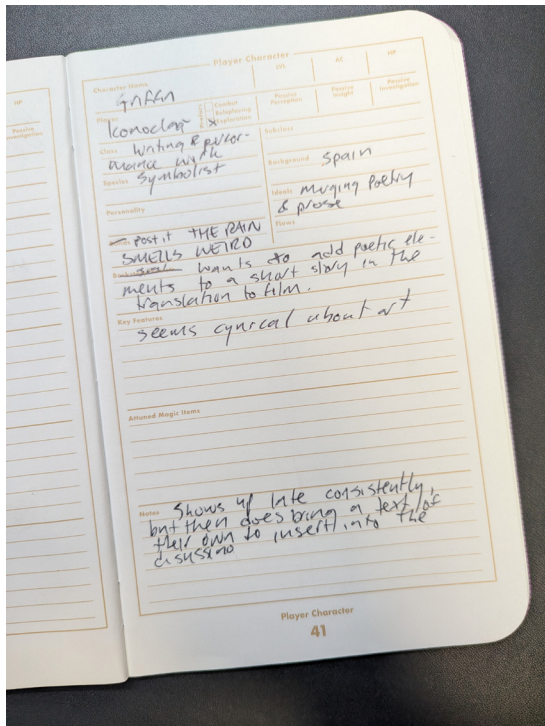 HP
Passive
Investigation
Player Character
Character Name
LVL
AC
HP
Griffin
Player
Combat
Roleplaying
Exploration
x
Passive
Perception
Passive
Insight
Passive
Investigation
Iconoclast
Class Writing & perfor-
mance work
Subclass
Species Symbolist
Background Spain
Personality
Ideals merging Poetry
& prose
Flaws
post it THE RAIN
SMELLS WEIRD
wants to add poetic ele-
ments to a short story in the
translation to film.
Key Features
seems cynical about art
Attuned Magic Items
Notes Shows up late consistently,
but then does bring a text of
their own to insert into the
disussino
Player Character
41